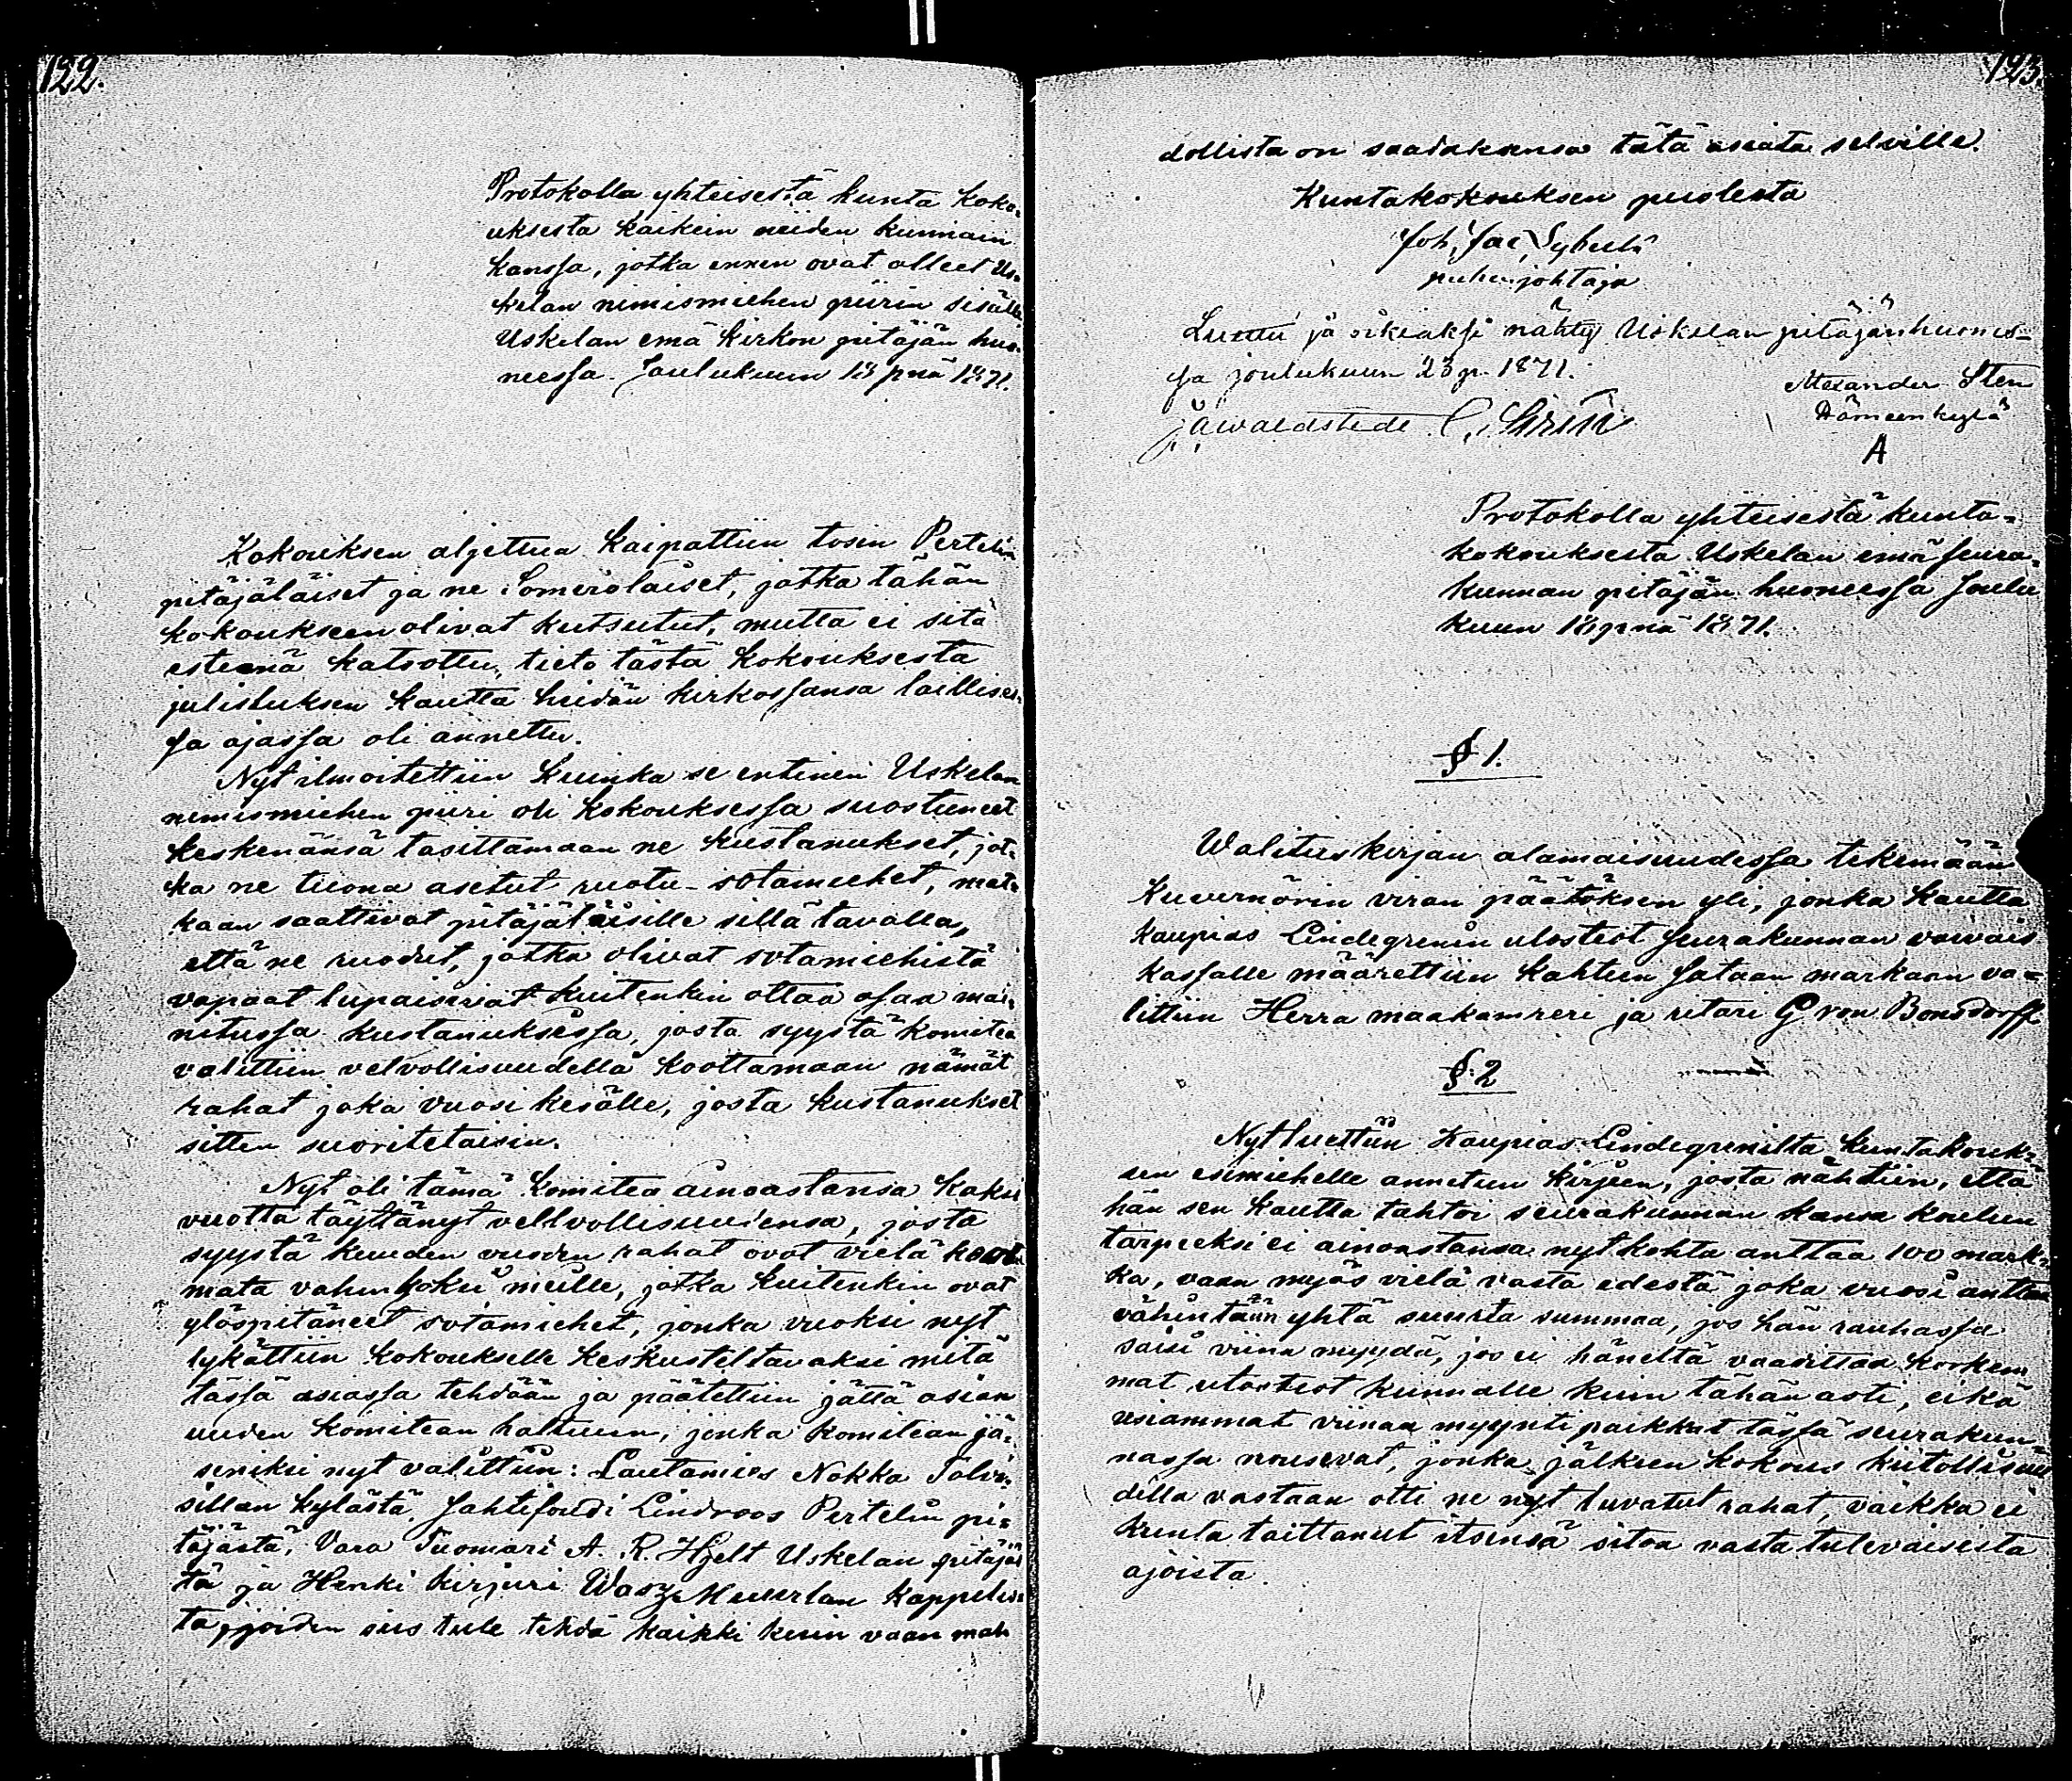 122.
Protokolla yhteisestä kunta koko-
uksesta kaikein niiden kunnain
kanssa, jotka ennen ovat olleet Us-
kelan nimismiehen piirin sisällä
Uskelan emä kirkon pitäjän huo-
neessa. Joulukuun 18 pnä 1871.
Kokouksen aljettua kaipattiin tosin Pertelin
pitäjäläiset ja ne Somerolaiset, jotka tähän
kokoukseen olivat kutsutut, mutta ei sitä
esteenä katsottu, tieto tästä kokouksesta
julistuksen kautta heidän kirkossansa laillises-
sa ajassa oli annettu.
Nyt ilmoitettiin kuinka se entinen Uskelan
nimismiehen piiri oli kokouksessa suostuneet
keskenänsä tasittamaan ne kustanukset, jot-
ka ne tuona asetut ruotu-sotamiehet, mat-
kaan saattivat pitäjäläisille sillä tavalla,
että ne ruodut, jotka olivat sotamiehistä
vapaat lupaisivat kuitenkin ottaa osaa mai-
nitussa kustanuksessa, josta syystä komitea
valittiin velvollisuudella koottamaan nämät
rahat joka vuosi kesälle, josta kustanukset
sitten suoritetaisin.
Nyt oli tämä komitea ainoastansa kaksi
vuotta täyttänyt vellvollisuutensa, josta
syystä kuuden vuoden rahat ovat vielä koot-
mata vahingoksi meille, jotka kuitenkin ovat
ylöspitäneet sotamiehet, jonka vuoksi nyt
lykättiin kokoukselle keskusteltavaksi mitä
tässä asiassa tehdään ja päätettiin jättä asian
uuden komitean haltuun, jonka komitean jä-
seniksi nyt valittiin: Lautamies Nokka Talvi-
sillan kylästä, Jahtifoudi Lindroos Pertelin pi-
täjästä, Vara Tuomari A. R. Hjelt Uskelan pitäjäs
tä ja Henki kirjuri Wasz Muurlan kappelis-
ta, joiden siis tule tehdä kaikki kuin vaan mah
123.
dollista on saadaksensa tätä asiata selville.
Kuntakokouksen puolesta
Joh. Jac.
puhenjohtaja
Luettu ja oikiaksi nähty Uskelan pitäjänhuones-
sa joulukuun 23 p. 1871.
Alexander Sten
Hämeenkylä
A
Protokolla yhteisestä kunta-
kokouksesta Uskelan emä seura-
kunnan pitäjän huoneessa Joulu
kuun 18 pnä 1871.
§ 1.
Walituskirjan alamaisuudessa tekemään
Kuvernörin viran päätöksen yli, jonka kautta
kaupias Lindegrenin ulosteot seurakunnan vaivais
kassalle määrettiin kahteen sataan markaan va-
littiin Herra maakamreri ja ritari G von Bonsdorff
§ 2
Nyt luettiin Kaupias Lindegrenilta kuntakouk-
sen esimiehelle annetun kirjeen, josta nähtiin, että
hän sen kautta tahtoi seurakunnan kansa koulun
tarpeeksi ei ainoastansa nyt kohta anttaa 100 mark-
ka, vaan myös vielä vasta edestä joka vuosi anttaa
vähintään yhtä suurta summaa, jos hän rauhassa
saisi viina myydä, jos ei häneltä vaadittaa korkem
mat ulosteot kunnalle kuin tähän asti, eikä
usiammat viinan myynti paikkat tässä seurakun-
nassa nousevat, jonka jälkeen kokous kiitollisuu
della vastaan otti ne nyt luvatut rahat, vaikka ei
kunta taittanut itsensä sitoa vasta tulevaisista
ajoista.